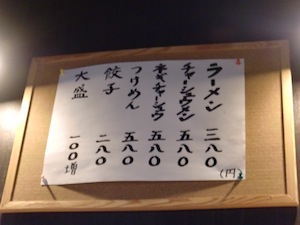 ラーメン 三八〇
チャーシュウメン 五八〇
ネギチャーシュウ 五八〇
つけめん 五八〇
餃子 二八〇
大盛 一〇〇増
(円)